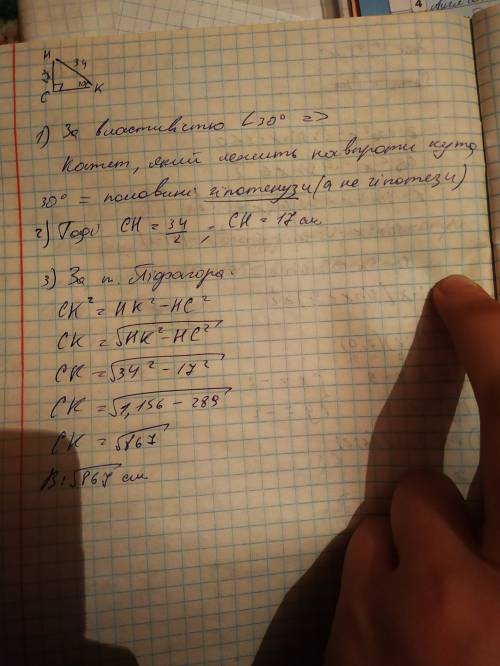 4
Н
34
С
К
1) За властивістю ∠30° =>
Катет, який лежить навпроти кута
30° = половині гіпотенузи (а не гіпотези)
2) Тоді СН = 34/2 ; СН = 17 см
3) За т. Піфагора.
СК² = НК² - НС²
СК = √НК² - НС²
СК = √34² - 17²
СК = √1,156 - 289
СК = √867
В: √867 см